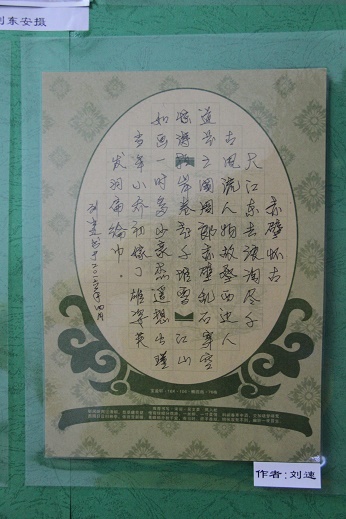 东安摄
赤壁怀古
大江东去浪淘尽千
古风流人物故垒西边人
道是三国周郎赤壁乱石穿空
惊涛拍岸卷起千堆雪江山
如画一时多少豪杰遥想公瑾
当年小乔初嫁了雄姿英
发羽扇纶巾。
作者:刘速